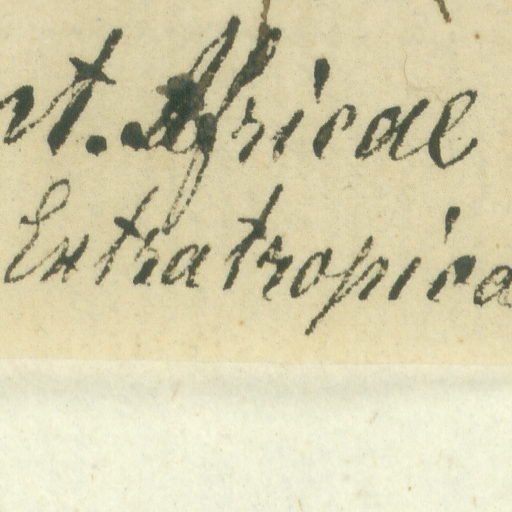 rt. Africae
Extratropica